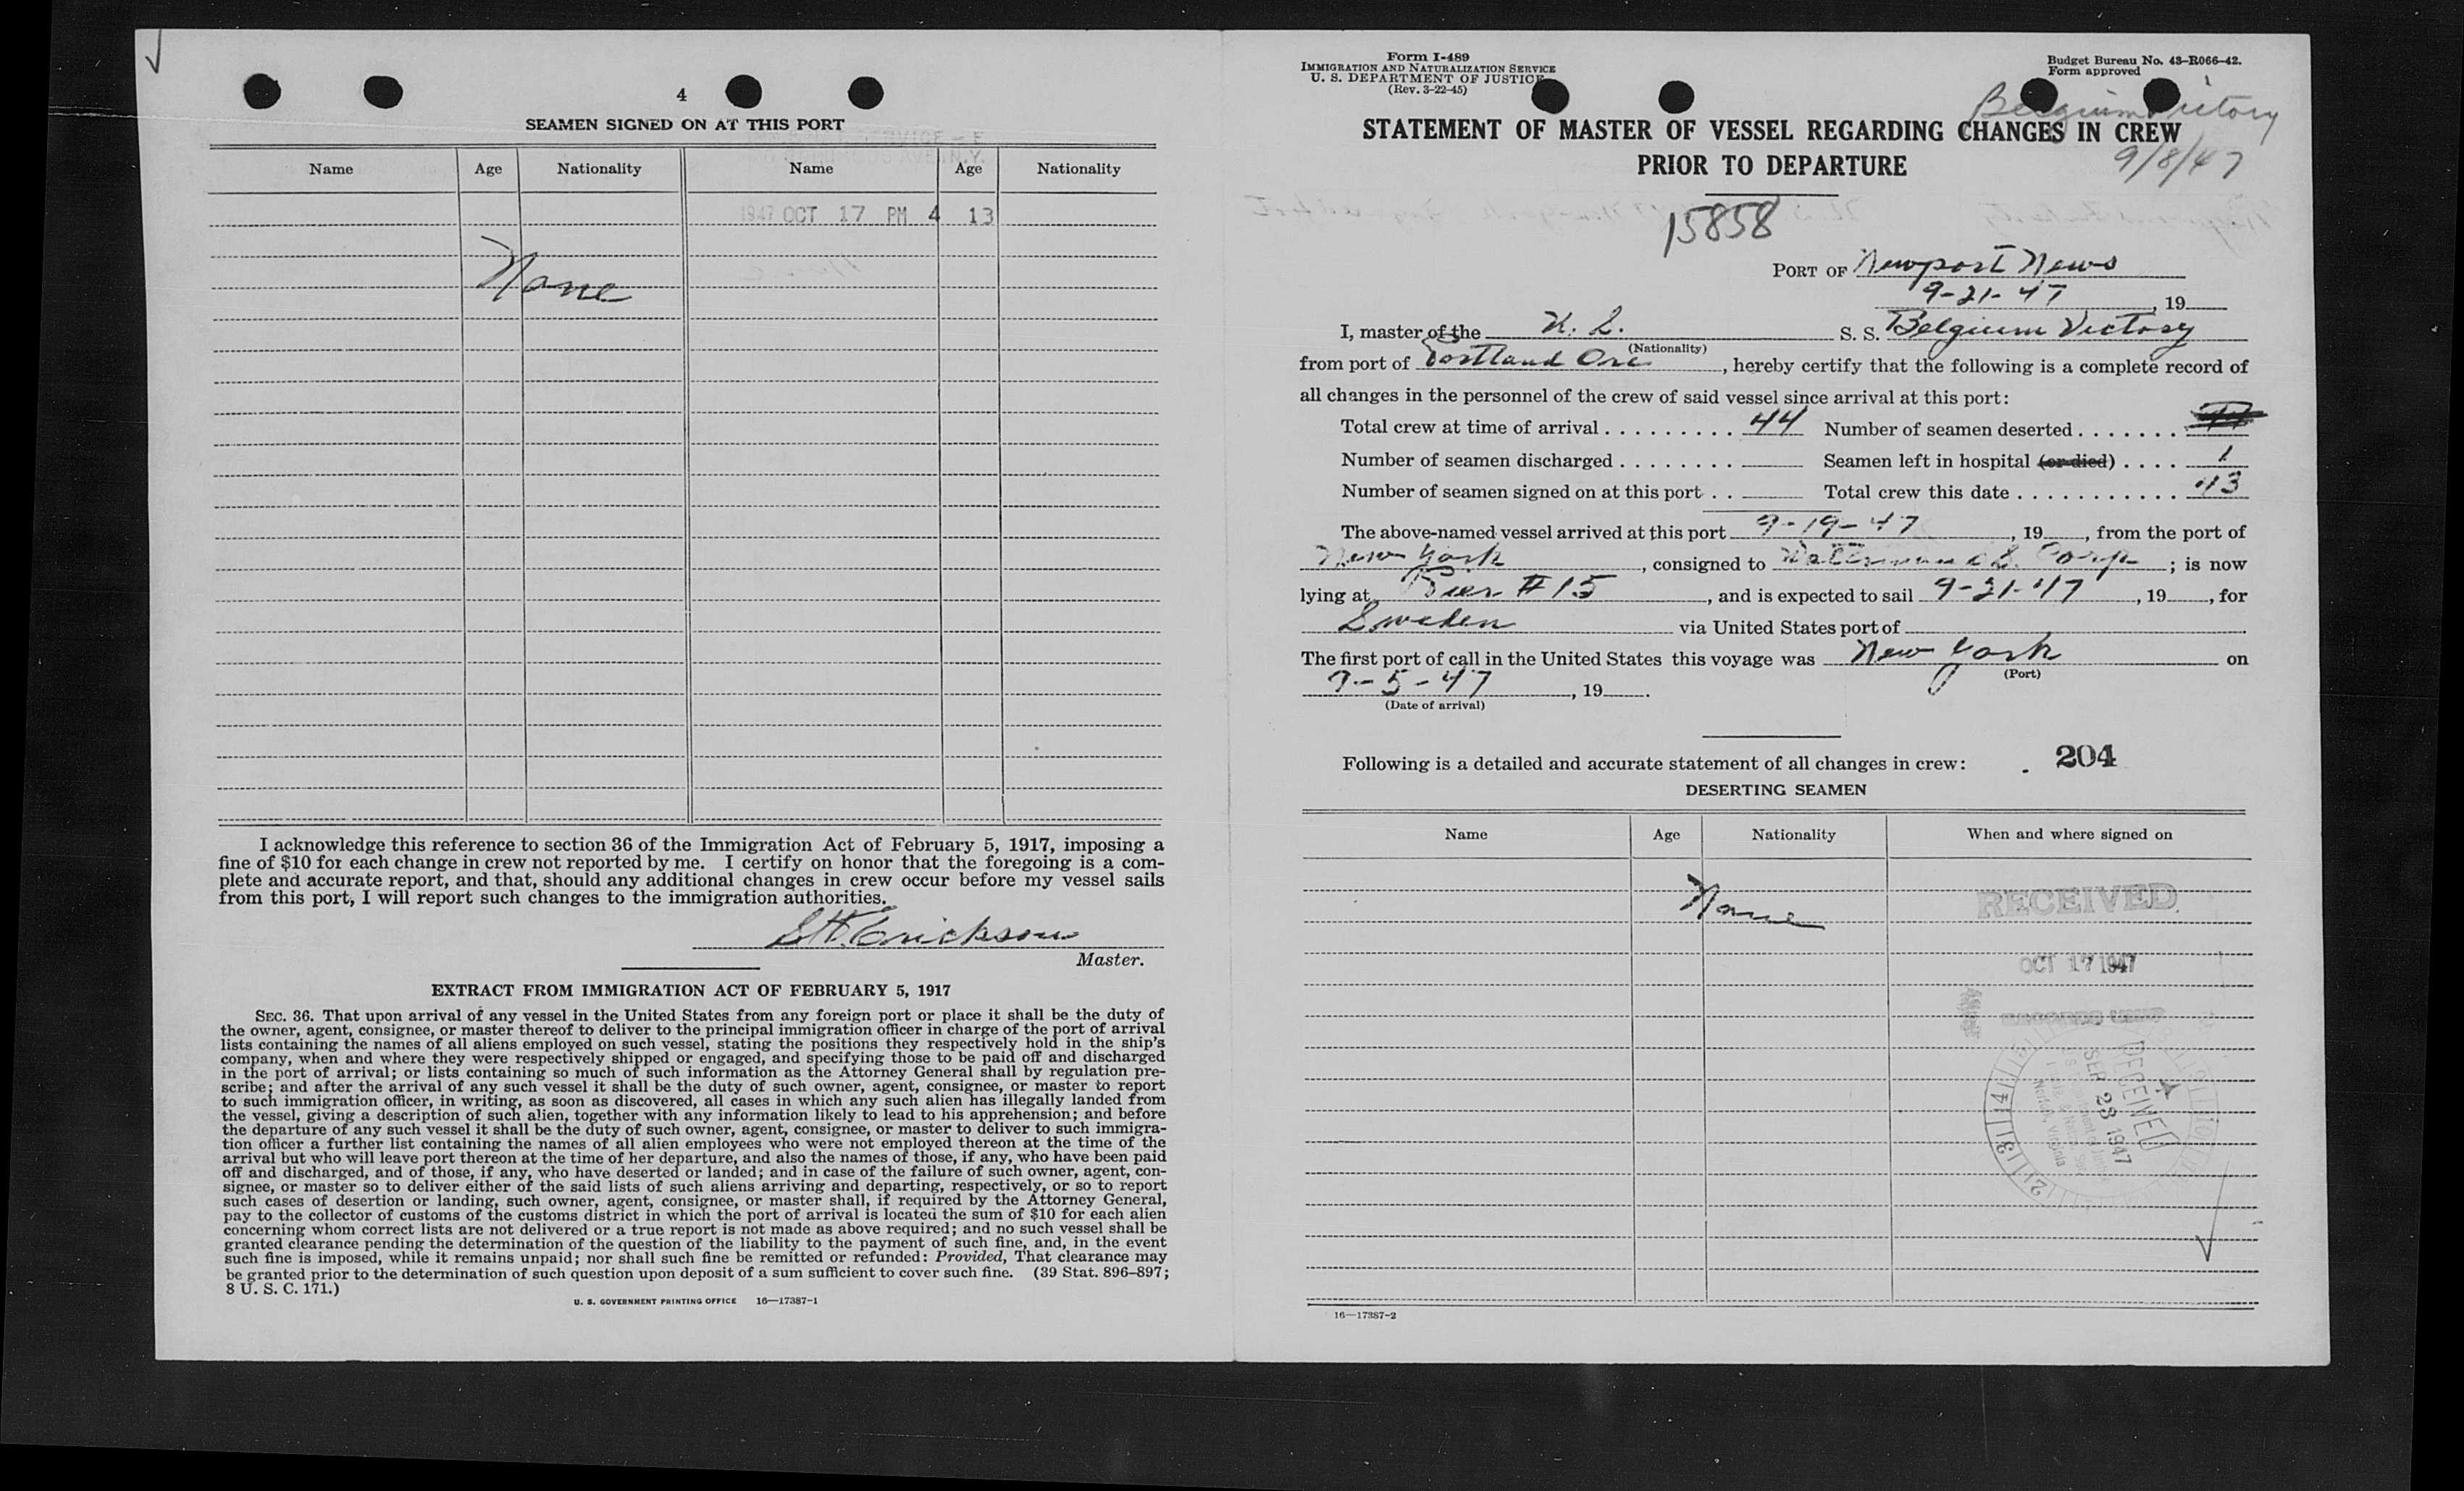 4
SEAMEN SIGNED ON AT THIS PORT
Name Age Nationality Name Age Nationality
1947 OCT 17 PM 4 13
None
I acknowledge this reference to section 36 of the Immigration Act of February 5, 1917, imposing a
fine of $10 for each change in crew not reported by me. I certify on honor that the foregoing is a com-
plete and accurate report, and that, should any additional changes in crew occur before my vessel sails
from this port, I will report such changes to the immigration authorities.
Erickson
Master.
EXTRACT FROM IMMIGRATION ACT OF FEBRUARY 5, 1917
SEC. 36. That upon arrival of any vessel in the United States from any foreign port or place it shall be the duty of
the owner, agent, consignee, or master thereof to deliver to the principal immigration officer in charge of the port of arrival
lists containing the names of all aliens employed on such vessel, stating the positions they respectively hold in the ship's
company, when and where they were respectively shipped or engaged, and specifying those to be paid off and discharged
in the port of arrival; or lists containing so much of such information as the Attorney General shall by regulation pre-
scribe; and after the arrival of any such vessel it shall be the duty of such owner, agent, consignee, or master to report
to such immigration officer, in writing, as soon as discovered, all cases in which any such alien has illegally landed from
the vessel, giving a description of such alien, together with any information likely to lead to his apprehension; and before
the departure of any such vessel it shall be the duty of such owner, agent, consignee, or master to deliver to such immigra-
tion officer a further list containing the names of all alien employees who were not employed thereon at the time of the
arrival but who will leave port thereon at the time of her departure, and also the names of those, if any, who have been paid
off and discharged, and of those, if any, who have deserted or landed; and in case of the failure of such owner, agent, con-
signee, or master so to deliver either of the said lists of such aliens arriving and departing, respectively, or so to report
such cases of desertion or landing, such owner, agent, consignee, or master shall, if required by the Attorney General,
pay to the collector of customs of the customs district in which the port of arrival is located the sum of $10 for each alien
concerning whom correct lists are not delivered or a true report is not made as above required; and no such vessel shall be
granted clearance pending the determination of the question of the liability to the payment of such fine, and, in the event
such fine is imposed, while it remains unpaid; nor shall such fine be remitted or refunded: Provided, That clearance may
be granted prior to the determination of such question upon deposit of a sum sufficient to cover such fine. (39 Stat. 896–897;
8 U. S. C. 171.)
U. S. GOVERNMENT PRINTING OFFICE 16—17387-1
Form I-489
IMMIGRATION AND NATURALIZATION SERVICE
U. S. DEPARTMENT OF JUSTICE
(Rev. 3-22-45)
Budget Bureau No. 43-R066-42.
Form approved
Belgium Victory
9/8/47
STATEMENT OF MASTER OF VESSEL REGARDING CHANGES IN CREW
PRIOR TO DEPARTURE
15858
PORT OF Newport News
9-21-47, 19
I, master of the (Nationality) S. S. Belgium Victory
from port of Portland Ore, hereby certify that the following is a complete record of
all changes in the personnel of the crew of said vessel since arrival at this port:
Total crew at time of arrival . . . . . . . . . 44 Number of seamen deserted . . . . . . .
Number of seamen discharged . . . . . . . . Seamen left in hospital (or died) . . . . 1
Number of seamen signed on at this port . . Total crew this date . . . . . . . . . . . 43
The above-named vessel arrived at this port 9-19-47, 19, from the port of
New York, consigned to Waterman S.S. Corp; is now
lying at Pier #15, and is expected to sail 9-21-47, 19, for
Sweden via United States port of
The first port of call in the United States this voyage was New York on
(Port)
9-5-47, 19.
(Date of arrival)
Following is a detailed and accurate statement of all changes in crew: 204
DESERTING SEAMEN
Name Age Nationality When and where signed on
None
RECEIVED
OCT 17 1947
RECORDS UNIT
RECEIVED
SEP 23 1947
Norfolk, Virginia
16—17387-2